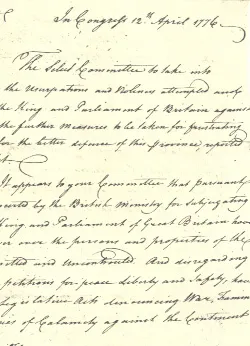 In Congress 12th April 1776
The Select Committee to take into
the Usurpations and Violences attempted and
the King and Parliament of Britain against
the further measures to be taken for frustrating
for the better defence of this Province, reported
It appears to your Committee that pursuant
by the British Ministry for Subjugating
King and Parliament of Great Britain have
over the persons and properties of the
and Uncontrouled And disregarding
petitions for peace Liberty and Safety, have
Legislative Acts denouncing War, Famine
of Calamity against the Continent